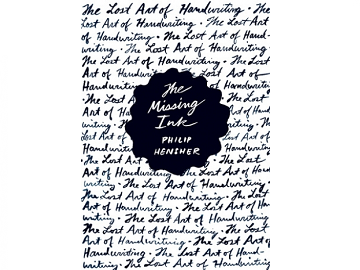 The Lost Art of Handwriting · The
Lost Art of Handwriting · The Lost Art
of Handwriting · The Lost Art of Hand-
writing · The Lost Art of Handwriting
· The Lost Art of Handwriting · The
Lost Art of Lost Art of
Handwriting
· The Lost Art
The
Missing
Ink
PHILIP
HENSHER
Art of Handwriting · The Lost Art of
writing · The Lost Art of Handwriting
· The Lost Art of Handwriting · The Lost
Art of Handwriting · The Lost Art of Han
writing · The Lost Art of Handwriting
· The Lost Art of Handwriting · The Lost Art
of Handwriting · The Lost Art of Hand-
writing · The Lost Art of Handwriting